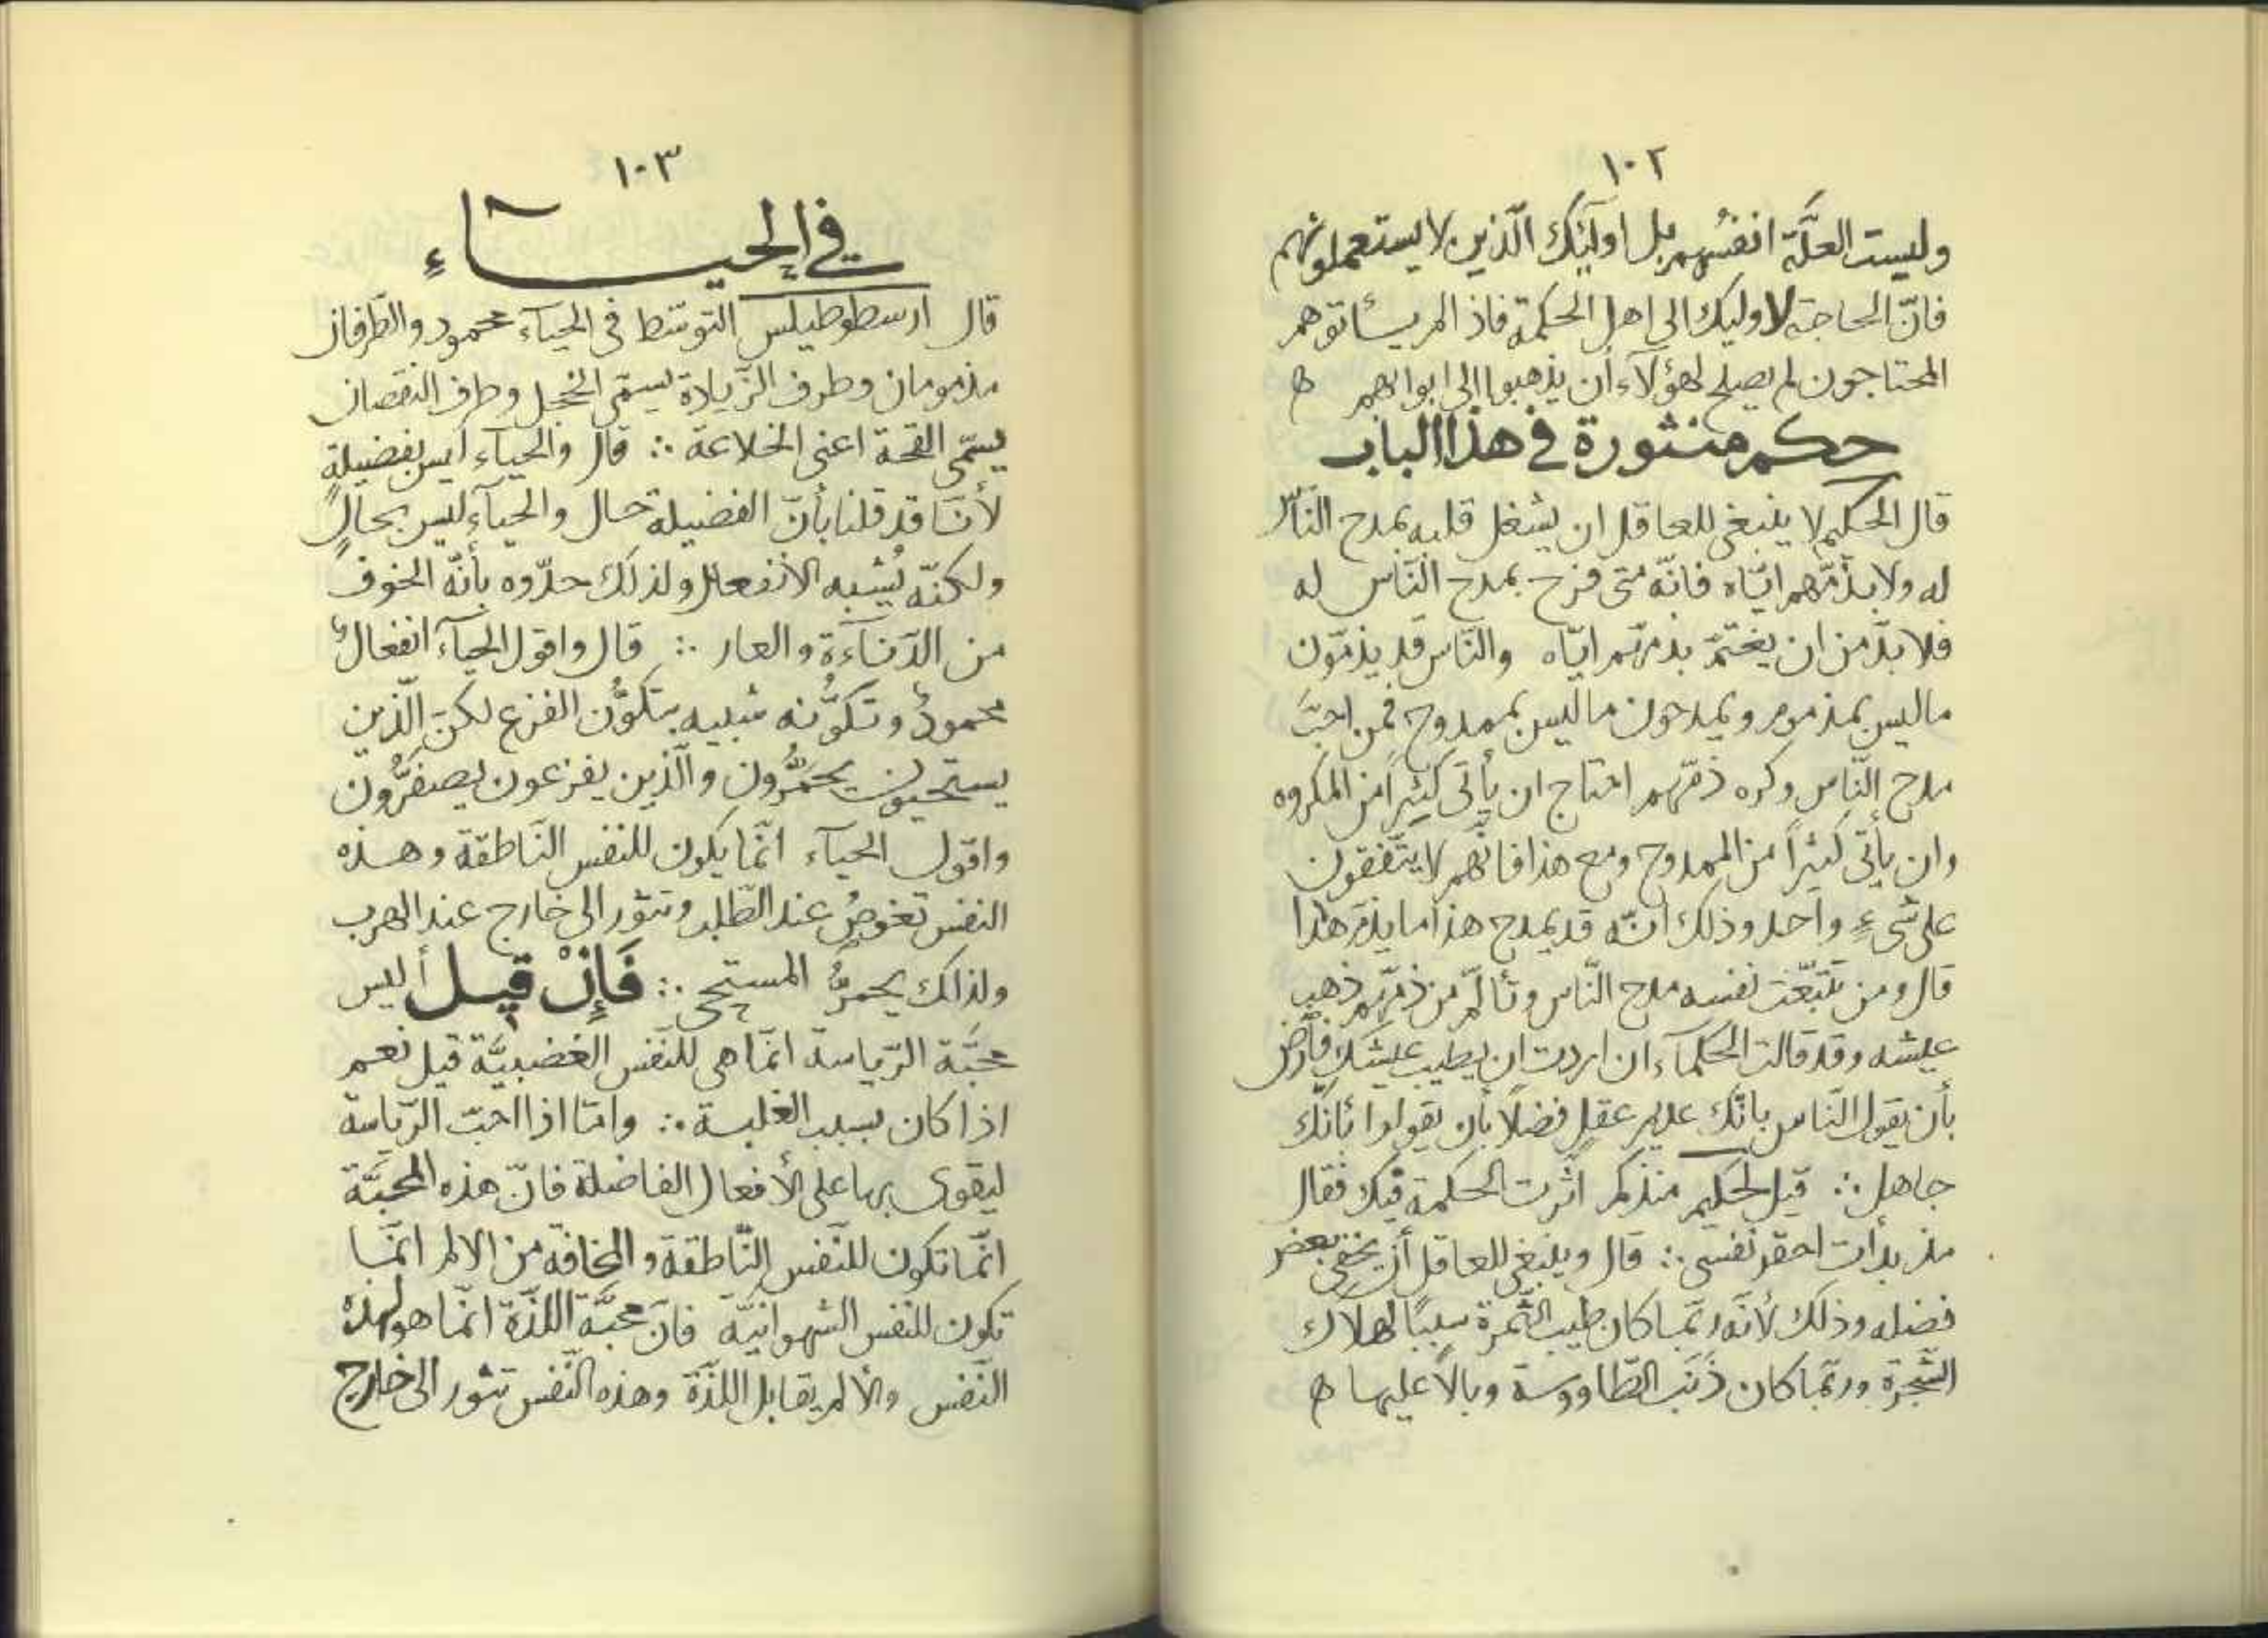 ١٠٢
وليست العلّة انفسُهم بل اولئِك الّذين لا يستعملونهم
فانّ الحاجة لاوليك الى اهل الحكمة فاذ المر يسئاتوهم
المحتاجون لم يصلح لهؤلآء أن يذهبوا الى ابوابهم ه
حكم منثورة في هذا الباب
قال الحكيم لا ينبغي للعاقل ان يشغل قلبه بمدح النّاس
له ولا بذمّهم ايّاه فانّه متى فرح بمدح النّاس له
فلا بدّ من ان يغتمّ بذمّهم ايّاه والنّاس قد يذمّون
ما ليس بمذموم ويمدحون ما ليس بممدوح فمن احبّ
مدح النّاس وكره ذمّهم احتاج ان يأتى كثيراً من المكروه
وان يأتى كثيراً من الممدوح ومع هذا فانّهم لا يتّفقون
على شىءٍ واحد وذلك انّه قد يمدح هذا ما يذمّ هذا
قال ومن تتبّعت نفسه مدح النّاس وتألّم من ذمّهم ذهب
عيشه وقد قالت الحكمآء ان اردت ان يطيب عيشك فأرض
بأن يقول النّاس بانّك عديم عقلٍ فضلاً بأن يقولوا بانّك
جاهل ∴ قيل لحكيم منذ كم اثّرت الحكمة فيك فقال
مذ بدأت احقر نفسى ∴ قال وينبغى للعاقل أن يخفى بعض
فضله وذلك لأنّه ربّما كان طيب الثّمرة سبباً لهلاك
الشّجرة وربّما كان ذَنَب الطّاووسة وبالاً عليها ه
١٠٣
في الحيــاءِ
قال ارسطوطيلس التوسّط فى الحيآء محمود والطّرفان
مذمومان وطرف الزّيادة يسمّى الخجل وطرف النقصان
يسمّى القحة اعنى الخلاعة ∴ قال والحيآء ليس بفضيلةٍ
لأنّا قد قلنا بأنّ الفضيلة حال والحيآء ليس بحالٍ
ولكنّه يُشبه الانفعال ولذلك حدّوه بأنّه الخوف
من الدّنآءة والعار ∴ قال واقول الحيآء انفعالٌ
محمودٌ وتكوُّنه شبيه بتكوُّن الفزع لكنّ الّذين
يستحيون يحمرُّون والّذين يفزعون يصفرُّون
واقول الحيآء انّما يكون للنفس النّاطقة وهذه
النفس تغوصُ عند الطّلب وتثور الى خارج عند الهرب
ولذلك يحمرُّ المستحى ∴ فَإِنْ قيل أليس
محبَّة الرّياسة انّما هى للنّفس الغضبيَّة قيل نعم
اذا كان بسبب الغلبة ∴ وامّا اذا احبّ الرّياسة
ليقوى بها على الأفعال الفاضلة فانّ هذه المحبَّة
انّما تكون للنّفس النّاطقة والمخافة من الالم انّما
تكون للنفس الشهوانيّة فانّ محبَّة اللذّة انّما هو لهذه
النّفس والألم يقابل اللذّة وهذه النّفس تثور الى خارج